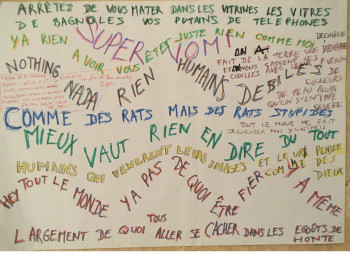 ARRÊTEZ DE VOUS MATER DANS LES VITRINES LES VITRES
DE BAGNOLES VOS PUTAINS DE TELEPHONES
YA RIEN A VOIR VOUS ÊTES JUSTE RIEN COMME MOI
SUPER VOMI
NOTHING
NADA
RIEN
HUMANS
DEBILES
ON A
FAIT DE LA TERRE UNE
DECHARGE
DE
COULEURS
DE PEU ALORS
QU'ON S'ENTUPE
SEVERE
COMME DES RATS MAIS DES RATS STUPIDES
TOUT LE MONDE ME FAIT
MIEUX VAUT RIEN EN DIRE DU TOUT
HUMAINS QUI VENERENT LEURS IMAGES ET LEUR PENSER
COMME DES
DIEUX
HEY TOUT LE MONDE YA PAS DE QUOI ÊTRE FIER
YA MÊME
TOUS
LARGEMENT DE QUOI ALLER SE CACHER DANS LES EGOUTS DE
HONTE